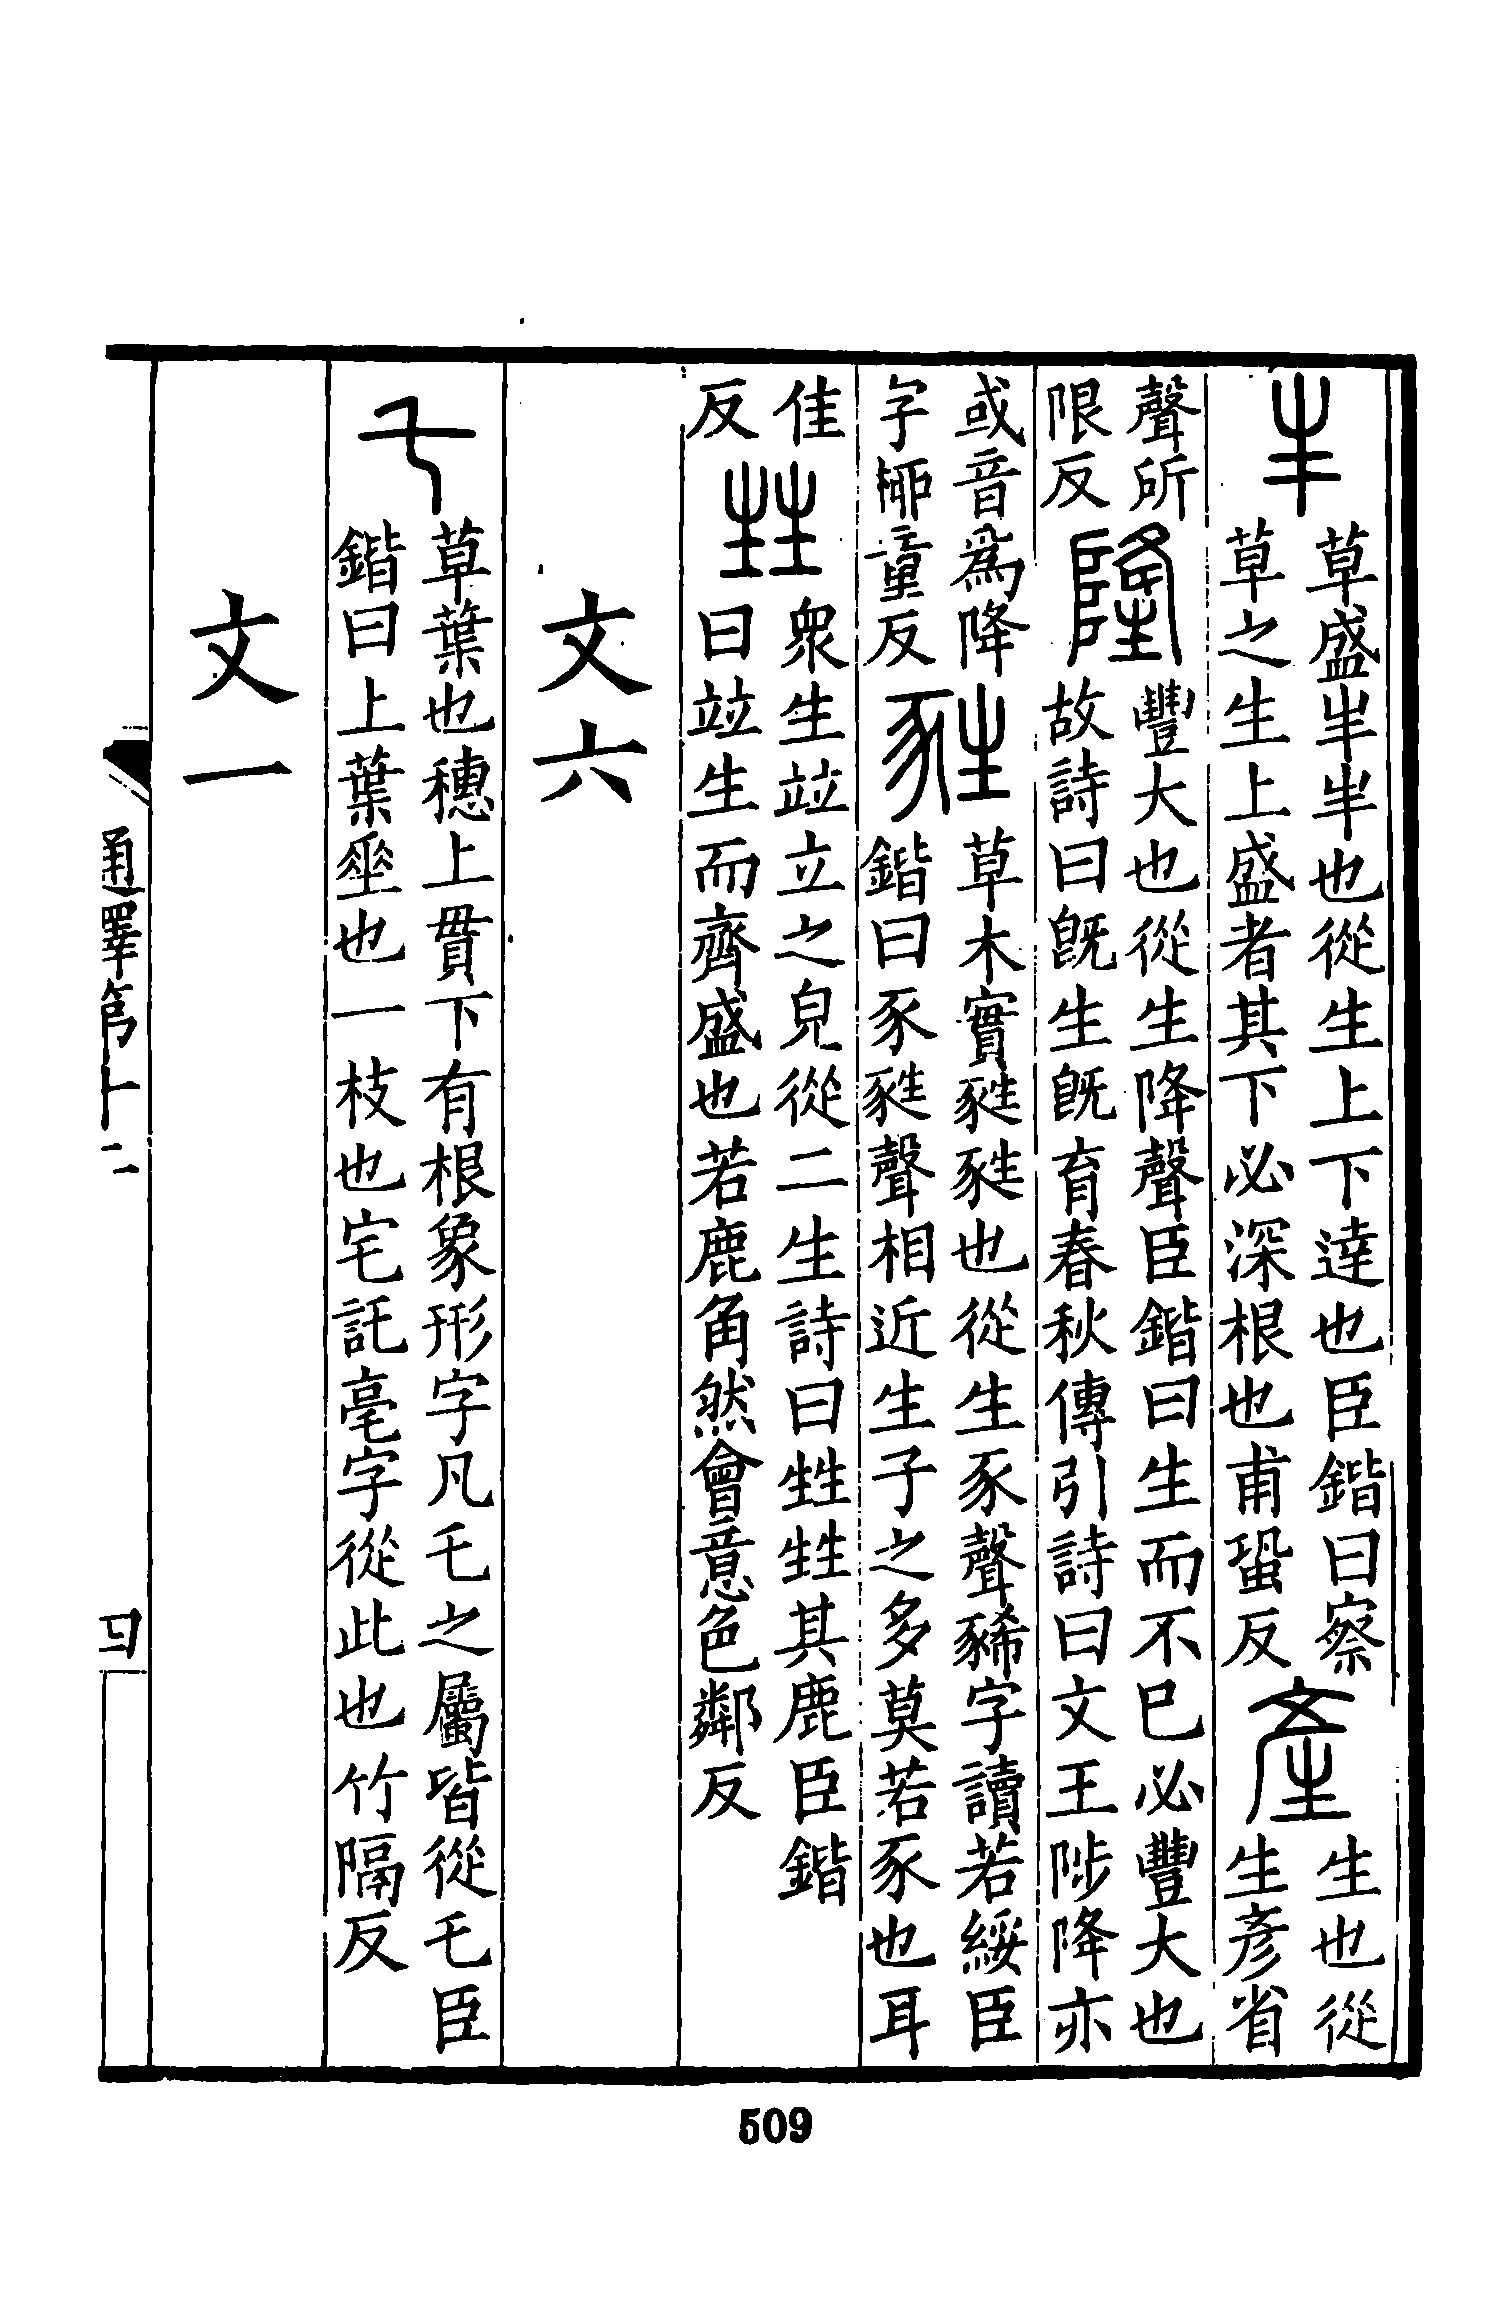 丰
草盛丰丰也從生上下達也臣鍇曰察
草之生上盛者其下必深根也甫蛩反
產
生也從
生彥省
聲所
限反
隆
豐大也從生降聲臣鍇曰生而不已必豐大也
故詩曰既生既育春秋傳引詩曰文王陟降亦
或音為降
字桺童反
甤
草木實甤甤也從生豕聲豨字讀若綏臣
鍇曰豕甤聲相近生子之多莫若豕也耳
佳
反
甡
眾生竝立之皃從二生詩曰甡甡其鹿臣鍇
曰竝生而齊盛也若鹿角然會意色鄰反
文六
乇
草葉也穗上貫下有根象形字凡乇之屬皆從乇臣
鍇曰上葉垂也一枝也宅託亳字從此也竹隔反
文一
通釋第十二
四
509